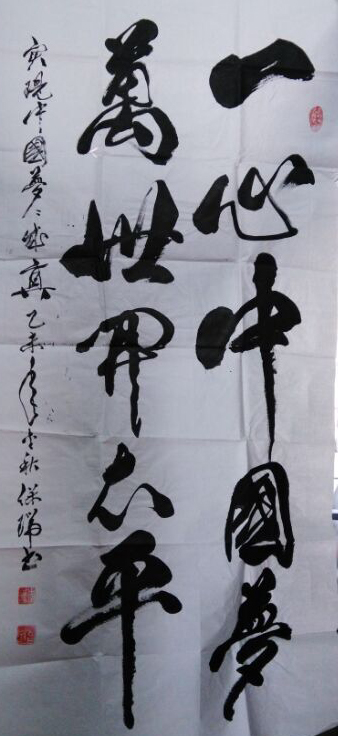 一心中國夢
萬世開太平
實現中國夢々成真 乙未年秋 保瑞書